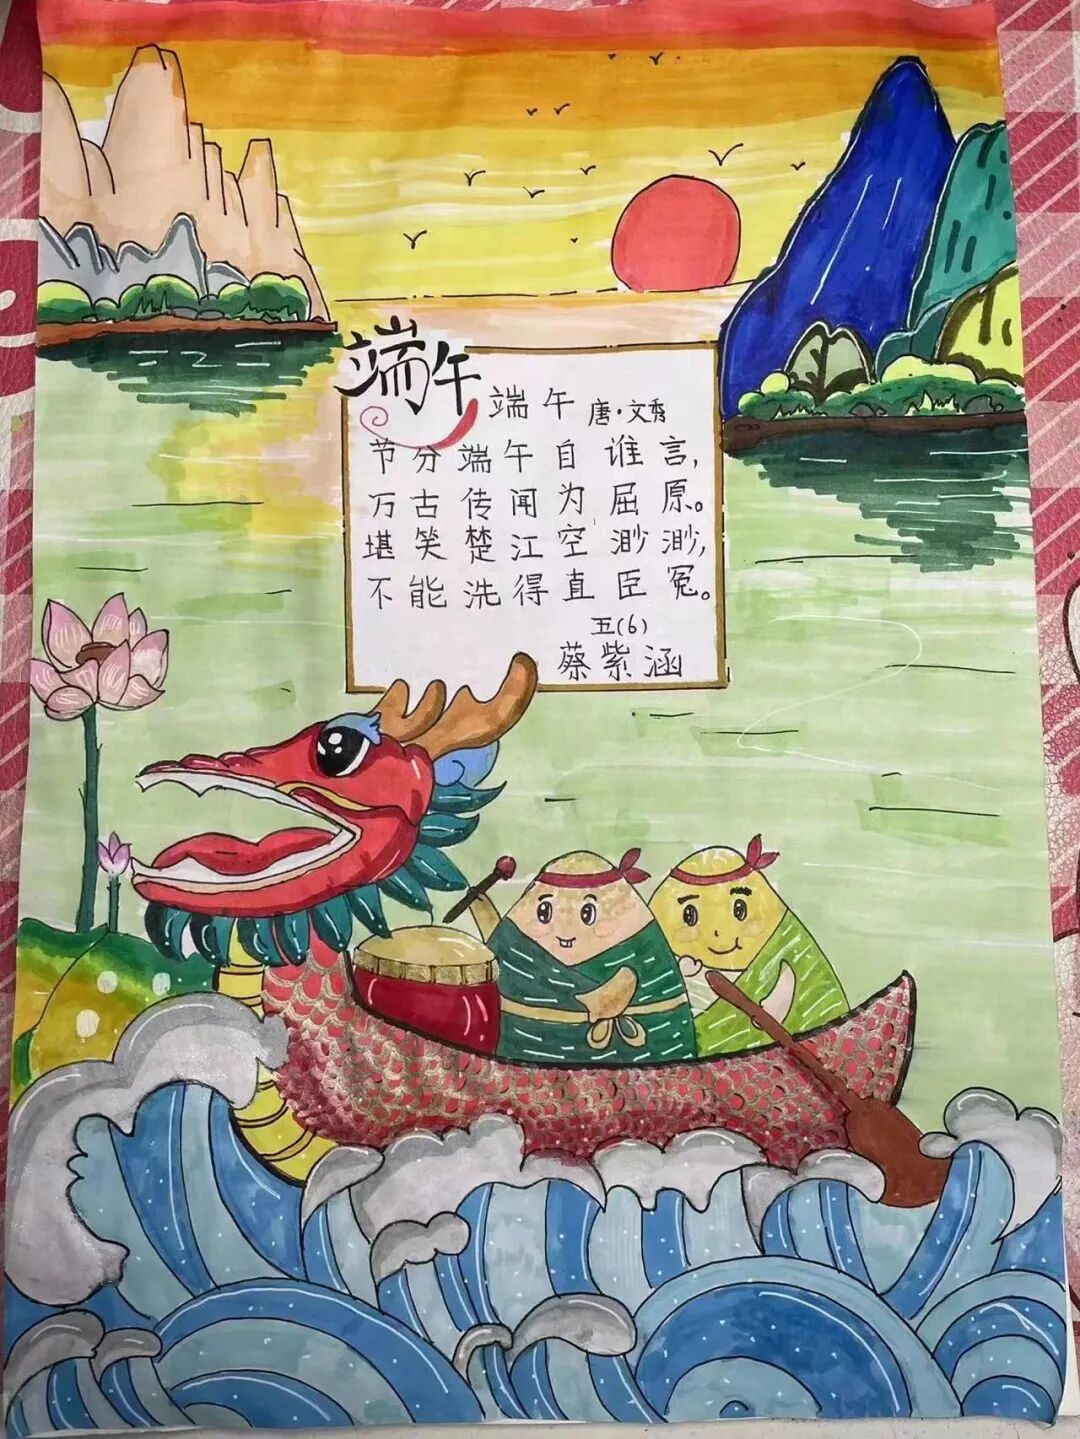 端午
端午 唐·文秀
节分端午自谁言,
万古传闻为屈原。
堪笑楚江空渺渺,
不能洗得直臣冤。
五(6)
蔡紫涵